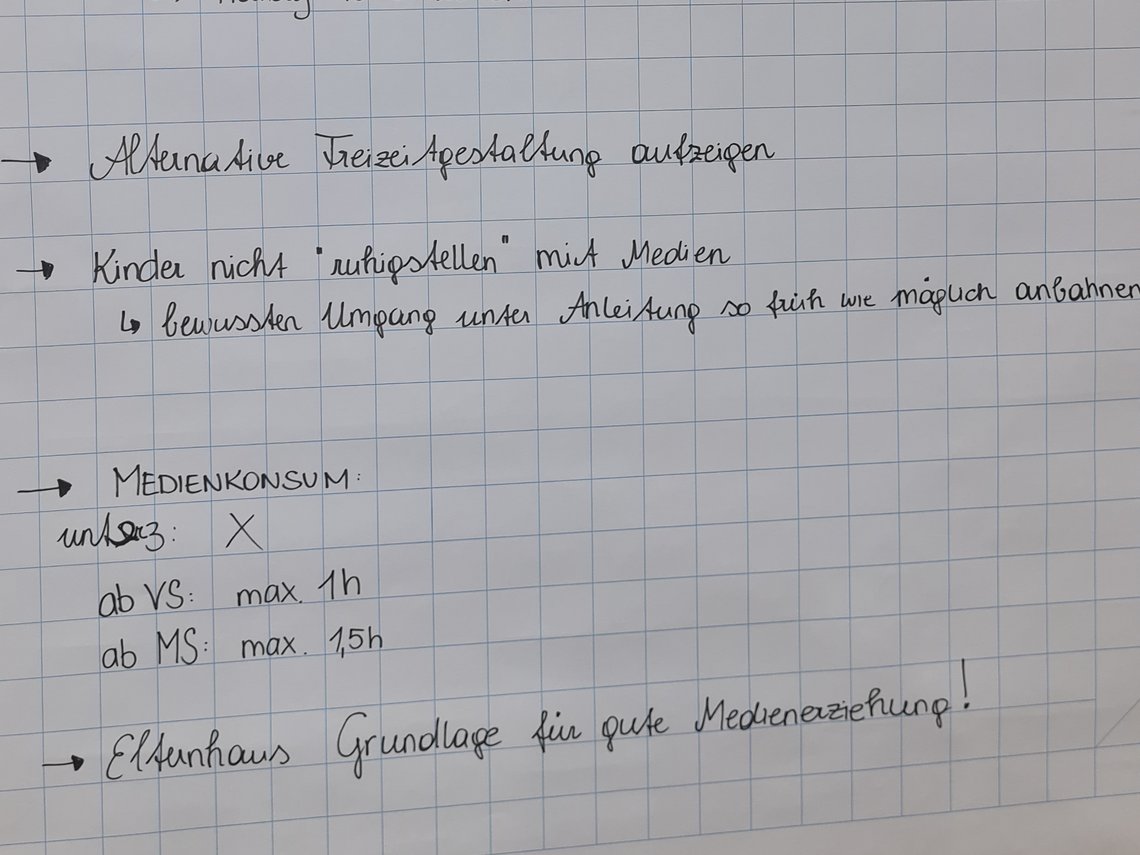 → Alternative Freizeitgestaltung aufzeigen
→ Kinder nicht "ruhigstellen" mit Medien
↳ bewussten Umgang unter Anleitung so früh wie möglich anbahnen
→ MEDIENKONSUM:
unter 3: X
ab VS: max. 1h
ab MS: max. 1,5h
→ Elternhaus Grundlage für gute Medienerziehung!